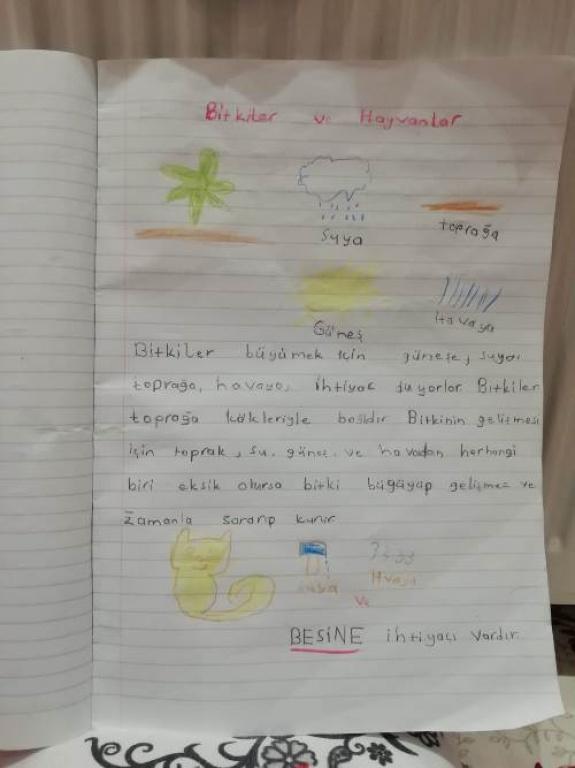 Bitkiler ve Hayvanlar
suya
toprağa
Güneş
Havaya
Bitkiler büyümek için güneşe, suya
toprağa, havaya, ihtiyaç duyorlar Bitkiler
toprağa kökleriyle bağlıdır Bitkinin gelişmesi
için toprak, su, güneş, ve havadan herhangi
biri eksik olursa bitki büyüyüp gelişmez ve
zamanla sararıp kurur
Suya
Hvaya
ve
BESİNE ihtiyaçı vardır.